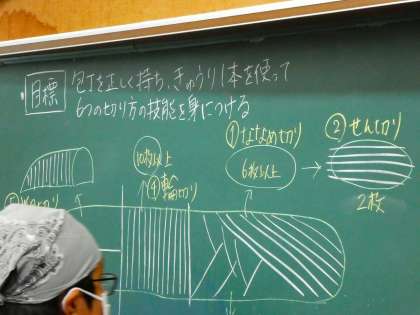 目標 包丁を正しく持ち、きゅうり1本を使って
6つの切り方の技能を身につける
①ななめ切り
②せん切り
10枚以上
6枚以上
④輪切り
2枚